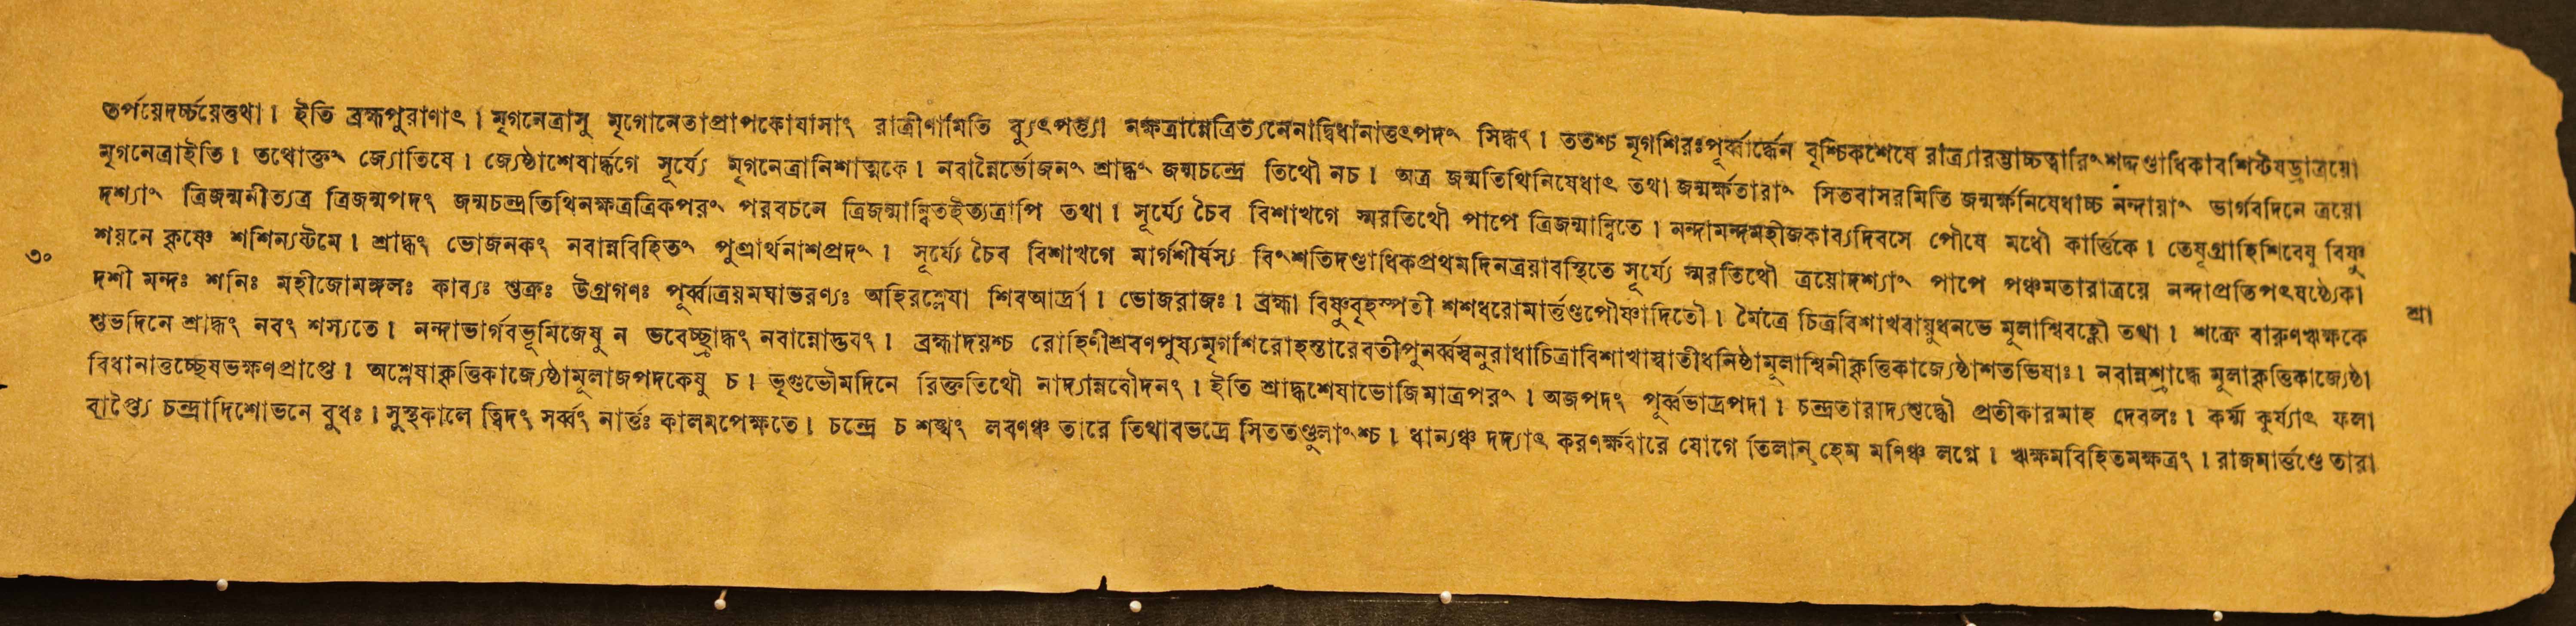 তর্পয়েদর্চ্চয়েত্তথা। ইতি ব্রহ্মপুরাণাৎ। মৃগনেত্রাসু মৃগোনেতাপ্রাপকোযাসাং রাত্রীণামিতি ব্যুৎপত্ত্যা নক্ষত্রান্নেত্রিত্যনেনাদ্বিধানাত্তৎপদং সিদ্ধং। ততশ্চ মৃগশিরঃপূর্ব্বার্দ্ধেন বৃশ্চিকশেষে রাত্র্যারম্ভাচ্চত্বারিংশদ্দণ্ডাধিকাবশিষ্টষড্রাত্রয়ো
মৃগনেত্রাইতি। তথোক্তং জ্যোতিষে। জ্যেষ্ঠাশেষার্দ্ধগে সূর্য্যে মৃগনেত্রানিশাত্মকে। নবান্নৈর্ভোজনং শ্রাদ্ধং জন্মচন্দ্রে তিথৌ নচ। অত্র জন্মতিথিনিষেধাৎ তথা জন্মর্ক্ষতারাং সিতবাসরমিতি জন্মর্ক্ষনিষেধাচ্চ নন্দায়াং ভার্গবদিনে ত্রয়ো
দশ্যাং ত্রিজন্মনীত্যত্র ত্রিজন্মপদং জন্মচন্দ্রতিথিনক্ষত্রত্রিকপরং পরবচনে ত্রিজন্মান্বিতইত্যত্রাপি তথা। সূর্য্যে চৈব বিশাখগে স্মরতিথৌ পাপে ত্রিজন্মান্বিতে। নন্দামন্দমহীজকাব্যদিবসে পৌষে মধৌ কার্ত্তিকে। তেষূগ্রাহিশিবেষু বিষ্ণু
শয়নে কৃষ্ণে শশিন্যষ্টমে। শ্রাদ্ধং ভোজনকং নবান্নবিহিতং পুত্রার্থনাশপ্রদং। সূর্য্যে চৈব বিশাখগে মার্গশীর্ষস্য বিংশতিদণ্ডাধিকপ্রথমদিনত্রয়াবস্থিতে সূর্য্যে স্মরতিথৌ ত্রয়োদশ্যাং পাপে পঞ্চমতারাত্রয়ে নন্দাপ্রতিপৎষষ্ঠ্যেকা
৩০
দশী মন্দঃ শনিঃ মহীজোমঙ্গলঃ কাব্যঃ শুক্রঃ উগ্রগণঃ পূর্ব্বাত্রয়মঘাভরণ্যঃ অহিরশ্লেষা শিবআর্দ্রা। ভোজরাজঃ। ব্রহ্মা বিষ্ণুবৃহস্পতী শশধরোমার্ত্তণ্ডপৌষ্ণাদিতৌ। মৈত্রে চিত্রবিশাখবায়ুধনভে মূলাশ্বিবহ্নৌ তথা। শক্রে বারুণঋক্ষকে
শ্রা
শুভদিনে শ্রাদ্ধং নবং শস্যতে। নন্দাভার্গবভূমিজেষু ন ভবেচ্ছ্রাদ্ধং নবান্নোদ্ভবং। ব্রহ্মাদয়শ্চ রোহিণীশ্রবণপুষ্যমৃগশিরোহস্তারেবতীপুনর্ব্বস্বনুরাধাচিত্রাবিশাখাস্বাতীধনিষ্ঠামূলাশ্বিনীকৃত্তিকাজ্যেষ্ঠাশতভিষাঃ। নবান্নশ্রাদ্ধে মূলাকৃত্তিকাজ্যেষ্ঠা
বিধানাত্তচ্ছেষভক্ষণপ্রাপ্তে। অশ্লেষাকৃত্তিকাজ্যেষ্ঠামূলাজপদকেষু চ। ভৃগুভৌমদিনে রিক্ততিথৌ নাদ্যান্নবৌদনং। ইতি শ্রাদ্ধশেষাভোজিমাত্রপরং। অজপদং পূর্ব্বভাদ্রপদা। চন্দ্রতারাদ্যশুদ্ধৌ প্রতীকারমাহ দেবলঃ। কর্ম্ম কুর্য্যাৎ ফলা
বাপ্ত্যৈ চন্দ্রাদিশোভনে বুধঃ। সুস্থকালে ত্বিদং সর্ব্বং নার্ত্তঃ কালমপেক্ষতে। চন্দ্রে চ শঙ্খং লবণঞ্চ তারে তিথাবভদ্রে সিততণ্ডুলাংশ্চ। ধান্যঞ্চ দদ্যাৎ করণর্ক্ষবারে যোগে তিলান্ হেম মণিঞ্চ লগ্নে। ঋক্ষমবিহিতমক্ষত্রং। রাজমার্ত্তণ্ডে তারা